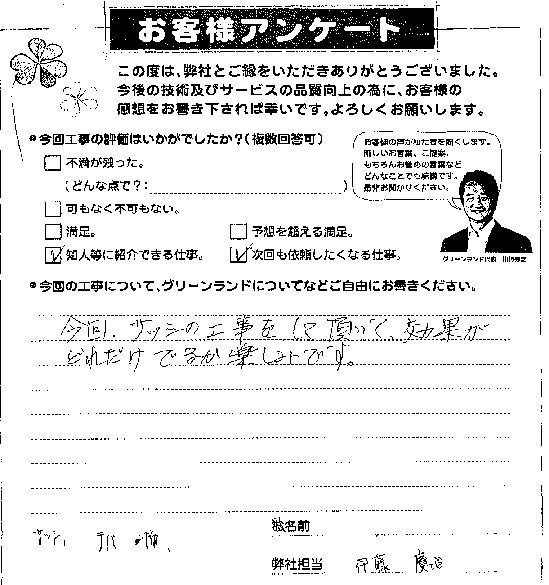 お客様アンケート
この度は、弊社とご縁をいただきありがとうございました。
今後の技術及びサービスの品質向上の為に、お客様の
感想をお書き下されば幸いです。よろしくお願いします。
今回工事の評価はいかがでしたか?(複数回答可)
不満が残った。
(どんな点で?: )
可もなく不可もない。
満足。 予想を超える満足。
知人等に紹介できる仕事。 次回も依頼したくなる仕事。
お客様の声が私たちを強くします。
厳しいお言葉、ご提案、
もちろんお褒めの言葉など
どんなことでも結構です。
是非お聞かせください。
グリーンランド代表
今回の工事について、グリーンランドについてなどご自由にお書きください。
今回、サッシの工事をして頂いて、効果が
どれだけでるか楽しみです。
サッシ
お名前
弊社担当 伊藤